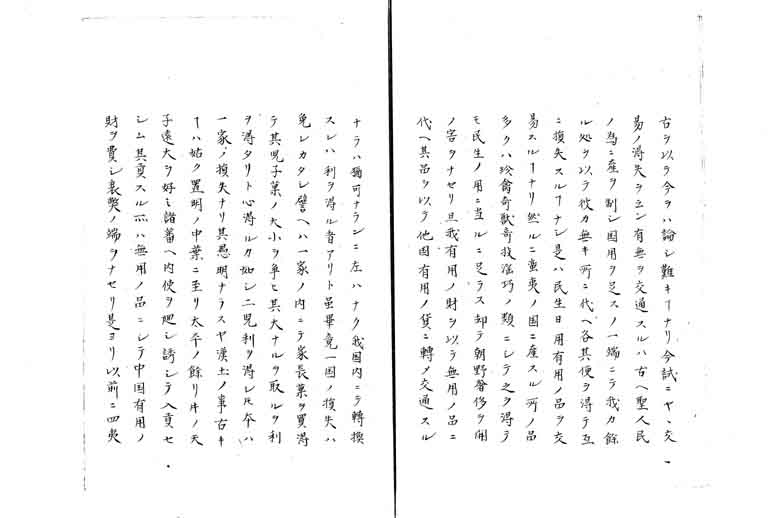 古ヲ以テ今ヲハ論シ難キヿナリ今試ニ交
易ノ得失ヲ云ン有無ヲ交通スルハ古ヘ聖人民
ノ為ニ産ヲ制シ国用ヲ足スノ一端ニテ我カ餘
ル処ヲ以テ彼カ無キ所ニ代ヘ各其便ヲ得テ互
ニ損失スルヿナシ是ハ民生日用有用ノ品ヲ交
易スルヿナリ然ルニ蛮夷ノ国ニ産スル所ノ品
多クハ珍禽奇獣奇技淫巧ノ類ニシテ之ヲ得テ
モ民生ノ用ニ当ルニ足ラス却テ朝野奢侈ヲ開
ノ害ヲナセリ且我有用ノ財ヲ以テ無用ノ品ニ
代ヘ其品ヲ以テ他国有用ノ貨ニ轉メ交通スル
ナラハ猶可ナランニ左ハナク我国内ニテ轉換
スレハ利ヲ得ル者アリト虽畢竟一国ノ損失ハ
免レカタシ譬ヘハ一家ノ内ニテ家長菓ヲ買得
テ其児子菓ノ大小ヲ争ヒ其大ナルヲ取ルヲ利
ヲ得タリト心得ルカ如シ二児利ヲ得レ𪜈本ハ
一家ノ損失ナリ其愚明ナラスヤ漢土ノ事古キ
ヿハ姑ク置明ノ中葉ニ至リ太平ノ餘リ年ノ天
子遠大ヲ好ミ諸蕃ヘ内使ヲ廽シ誘シテ入貢セ
シム其貢スル所ハ無用ノ品ニシテ中国有用ノ
財ヲ費シ衰獘ノ端ヲナセリ是ヨリ以前ニ四夷